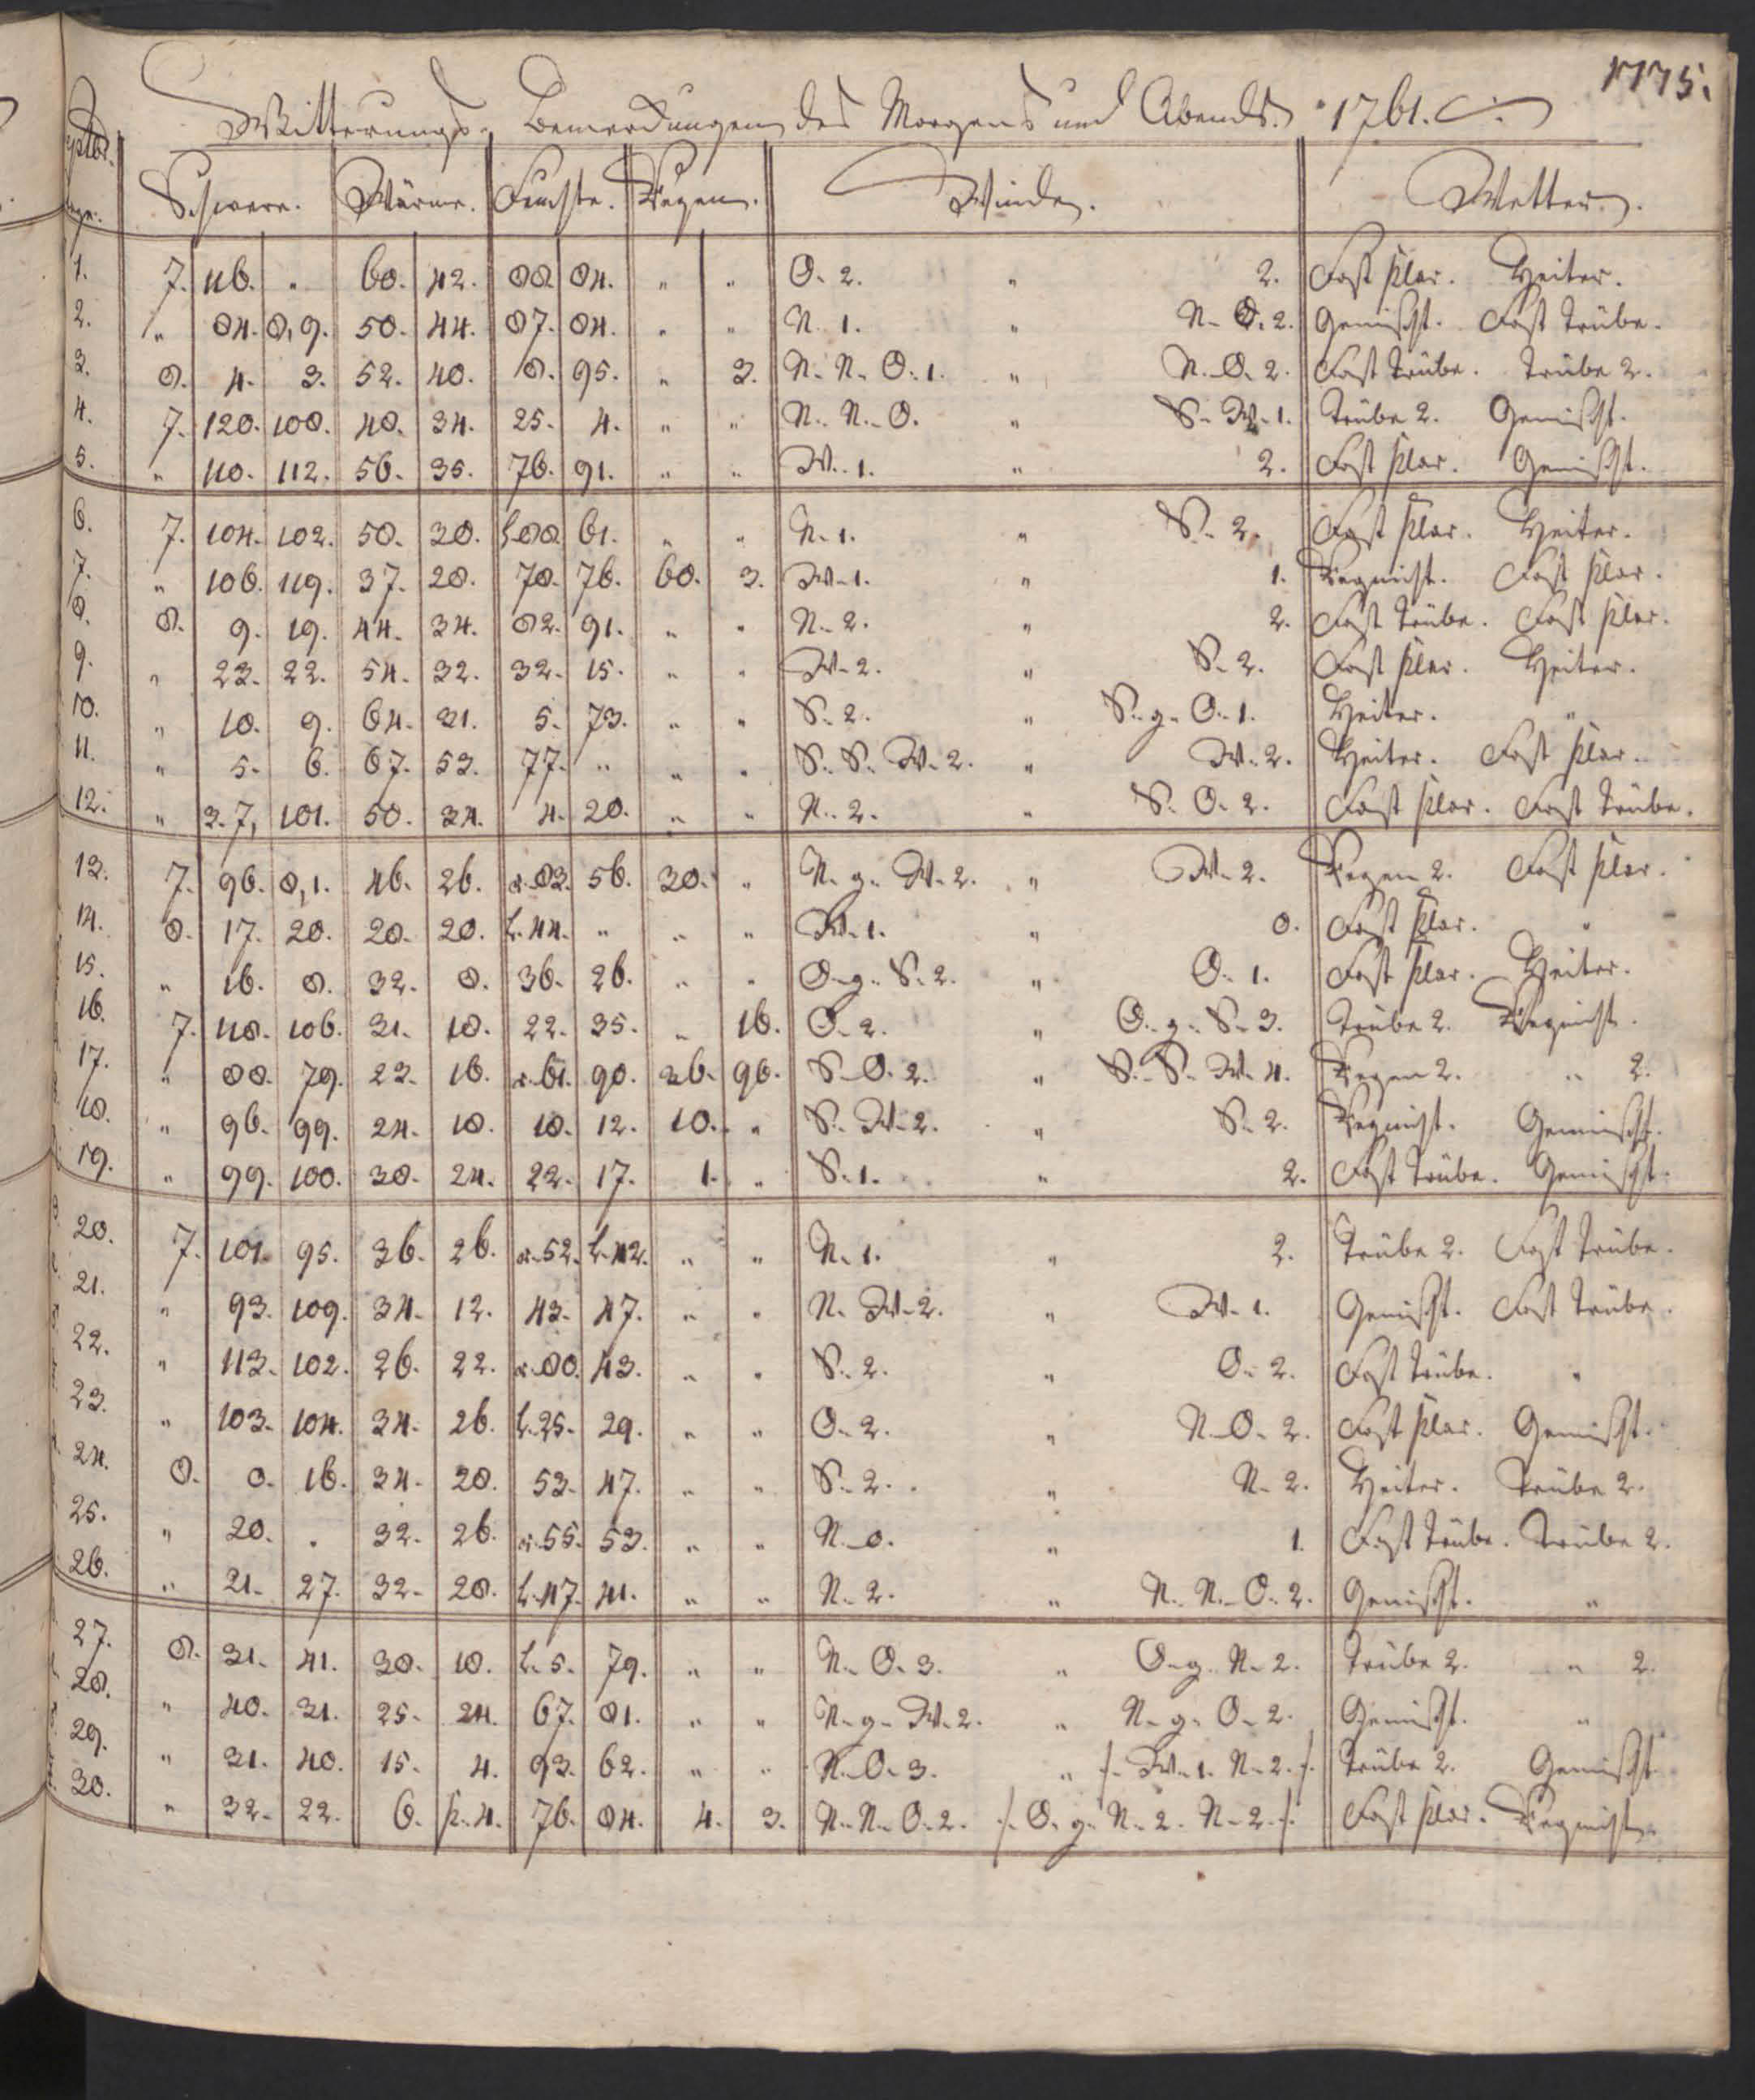 1775.
Witterungs- Bemerckungen des Morgens und Abends. 1761.
Schwere. Wärme. Feuchte. Regen. Winde. Wetter.
1. 7. 116. " 60. 42. 88. 84. " " O. 2. " 2. Fast klar. Heiter.
2. " 84. 8,9. 50. 44. 87. 84. " " N. 1. " N. O. 2. Gemischt. Fast trübe.
3. 8. 4. 3. 52. 40. 8. 95. " 3. N. N. O. 1. " N. O. 2. Fast trübe. Trübe 2.
4. 7. 120. 108. 40. 34. 25. 4. " " N. N. O. " S. W. 1. Trübe 2. Gemischt.
5. " 110. 112. 56. 35. 76. 91. " " W. 1. " 2. Fast klar. Gemischt.
6. 7. 104. 102. 50. 30. 88. 61. " " N. 1. " S. 2. Fast klar. Heiter.
7. " 106. 119. 37. 28. 78. 76. 60. 3. W. 1. " 1. Regnicht. Fast klar.
8. 8. 9. 19. 44. 34. 82. 91. " " N. 2. " 2. Fast trübe. Fast klar.
9. " 23. 22. 54. 32. 32. 15. " " W. 2. " S. 2. Fast klar. Heiter.
10. " 10. 9. 64. 31. 5. 73. " " S. 2. " S. g. O. 1. Heiter. "
11. " 5. 6. 67. 53. 77. " " " S. S. W. 2. " W. 2. Heiter. Fast klar.
12. " 3.7, 101. 50. 34. 4. 20. " " N. 2. " S. O. 2. Fast klar. Fast trübe.
13. 7. 96. 8,1. 46. 26. r. 83. 56. 30. " N. g. W. 2. " W. 2. Regen 2. Fast klar.
14. 8. 17. 20. 20. 20. L. 44. " " " W. 1. " 0. Fast klar. "
15. " 16. 8. 32. 8. 36. 26. " " O. g. S. 2. " O. 1. Fast klar. Heiter.
16. 7. 118. 106. 31. 18. 22. 35. " 16. O. 2. " O. g. S. 3. Trübe 2. Regnicht.
17. " 88. 79. 23. 16. r. 61. 90. 36. 96. S. O. 2. " S. S. W. 4. Regen 2. " 2.
18. " 96. 99. 24. 18. 18. 12. 10. " S. W. 2. " S. 2. Regnicht. Gemischt.
19. " 99. 100. 30. 24. 22. 17. 1. " S. 1. " 2. Fast trübe. Gemischt.
20. 7. 101. 95. 36. 26. r. 52. L. 42. " " N. 1. " 2. Trübe 2. Fast trübe.
21. " 93. 109. 34. 12. 43. 47. " " N. W. 2. " W. 1. Gemischt. Fast trübe.
22. " 113. 102. 26. 22. r. 80. 43. " " S. 2. " O. 2. Fast trübe. "
23. " 103. 104. 34. 26. L. 25. 29. " " O. 2. " N. O. 2. Fast klar. Gemischt.
24. 8. 0. 16. 34. 20. 53. 47. " " S. 2. " N. 2. Heiter. Trübe 2.
25. " 20. " 32. 26. r. 55. 53. " " N. 0. " 1. Fast trübe. Trübe 2.
26. " 21. 27. 32. 28. L. 47. 41. " " N. 2. " N. N. O. 2. Gemischt. "
27. 8. 31. 41. 30. 18. L. 5. 79. " " N. O. 3. " O. g. N. 2. Trübe 2. " 2.
28. " 40. 31. 25. 24. 67. 81. " " N. g. W. 2. " N. g. O. 2. Gemischt. "
29. " 31. 40. 15. 4. 93. 62. " " N. O. 3. " /. W. 1. N. 2. /. Trübe 2. Gemischt.
30. " 32. 22. 6. k. 4. 76. 84. 4. 3. N. N. O. 2. /. O. g. N. 2. N. 2. /. Fast klar. Regnicht.